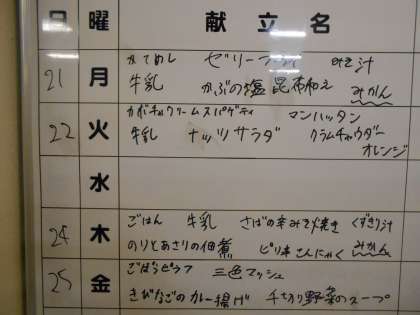 日 曜 献立名
21 月 かてめし ゼリーフライ みそ汁
牛乳 かぶの塩昆布和え みかん
22 火 カボチャクリームスパゲティ マンハッタン
牛乳 ナッツサラダ クラムチャウダー
オレンジ
水
24 木 ごはん 牛乳 さばの辛みそ焼き くずきり汁
のりとあさりの佃煮 ピリ辛こんにゃく みかん
25 金 ごぼうピラフ 三色マッシュ
きびなごのカレー揚げ 千切り野菜のスープ